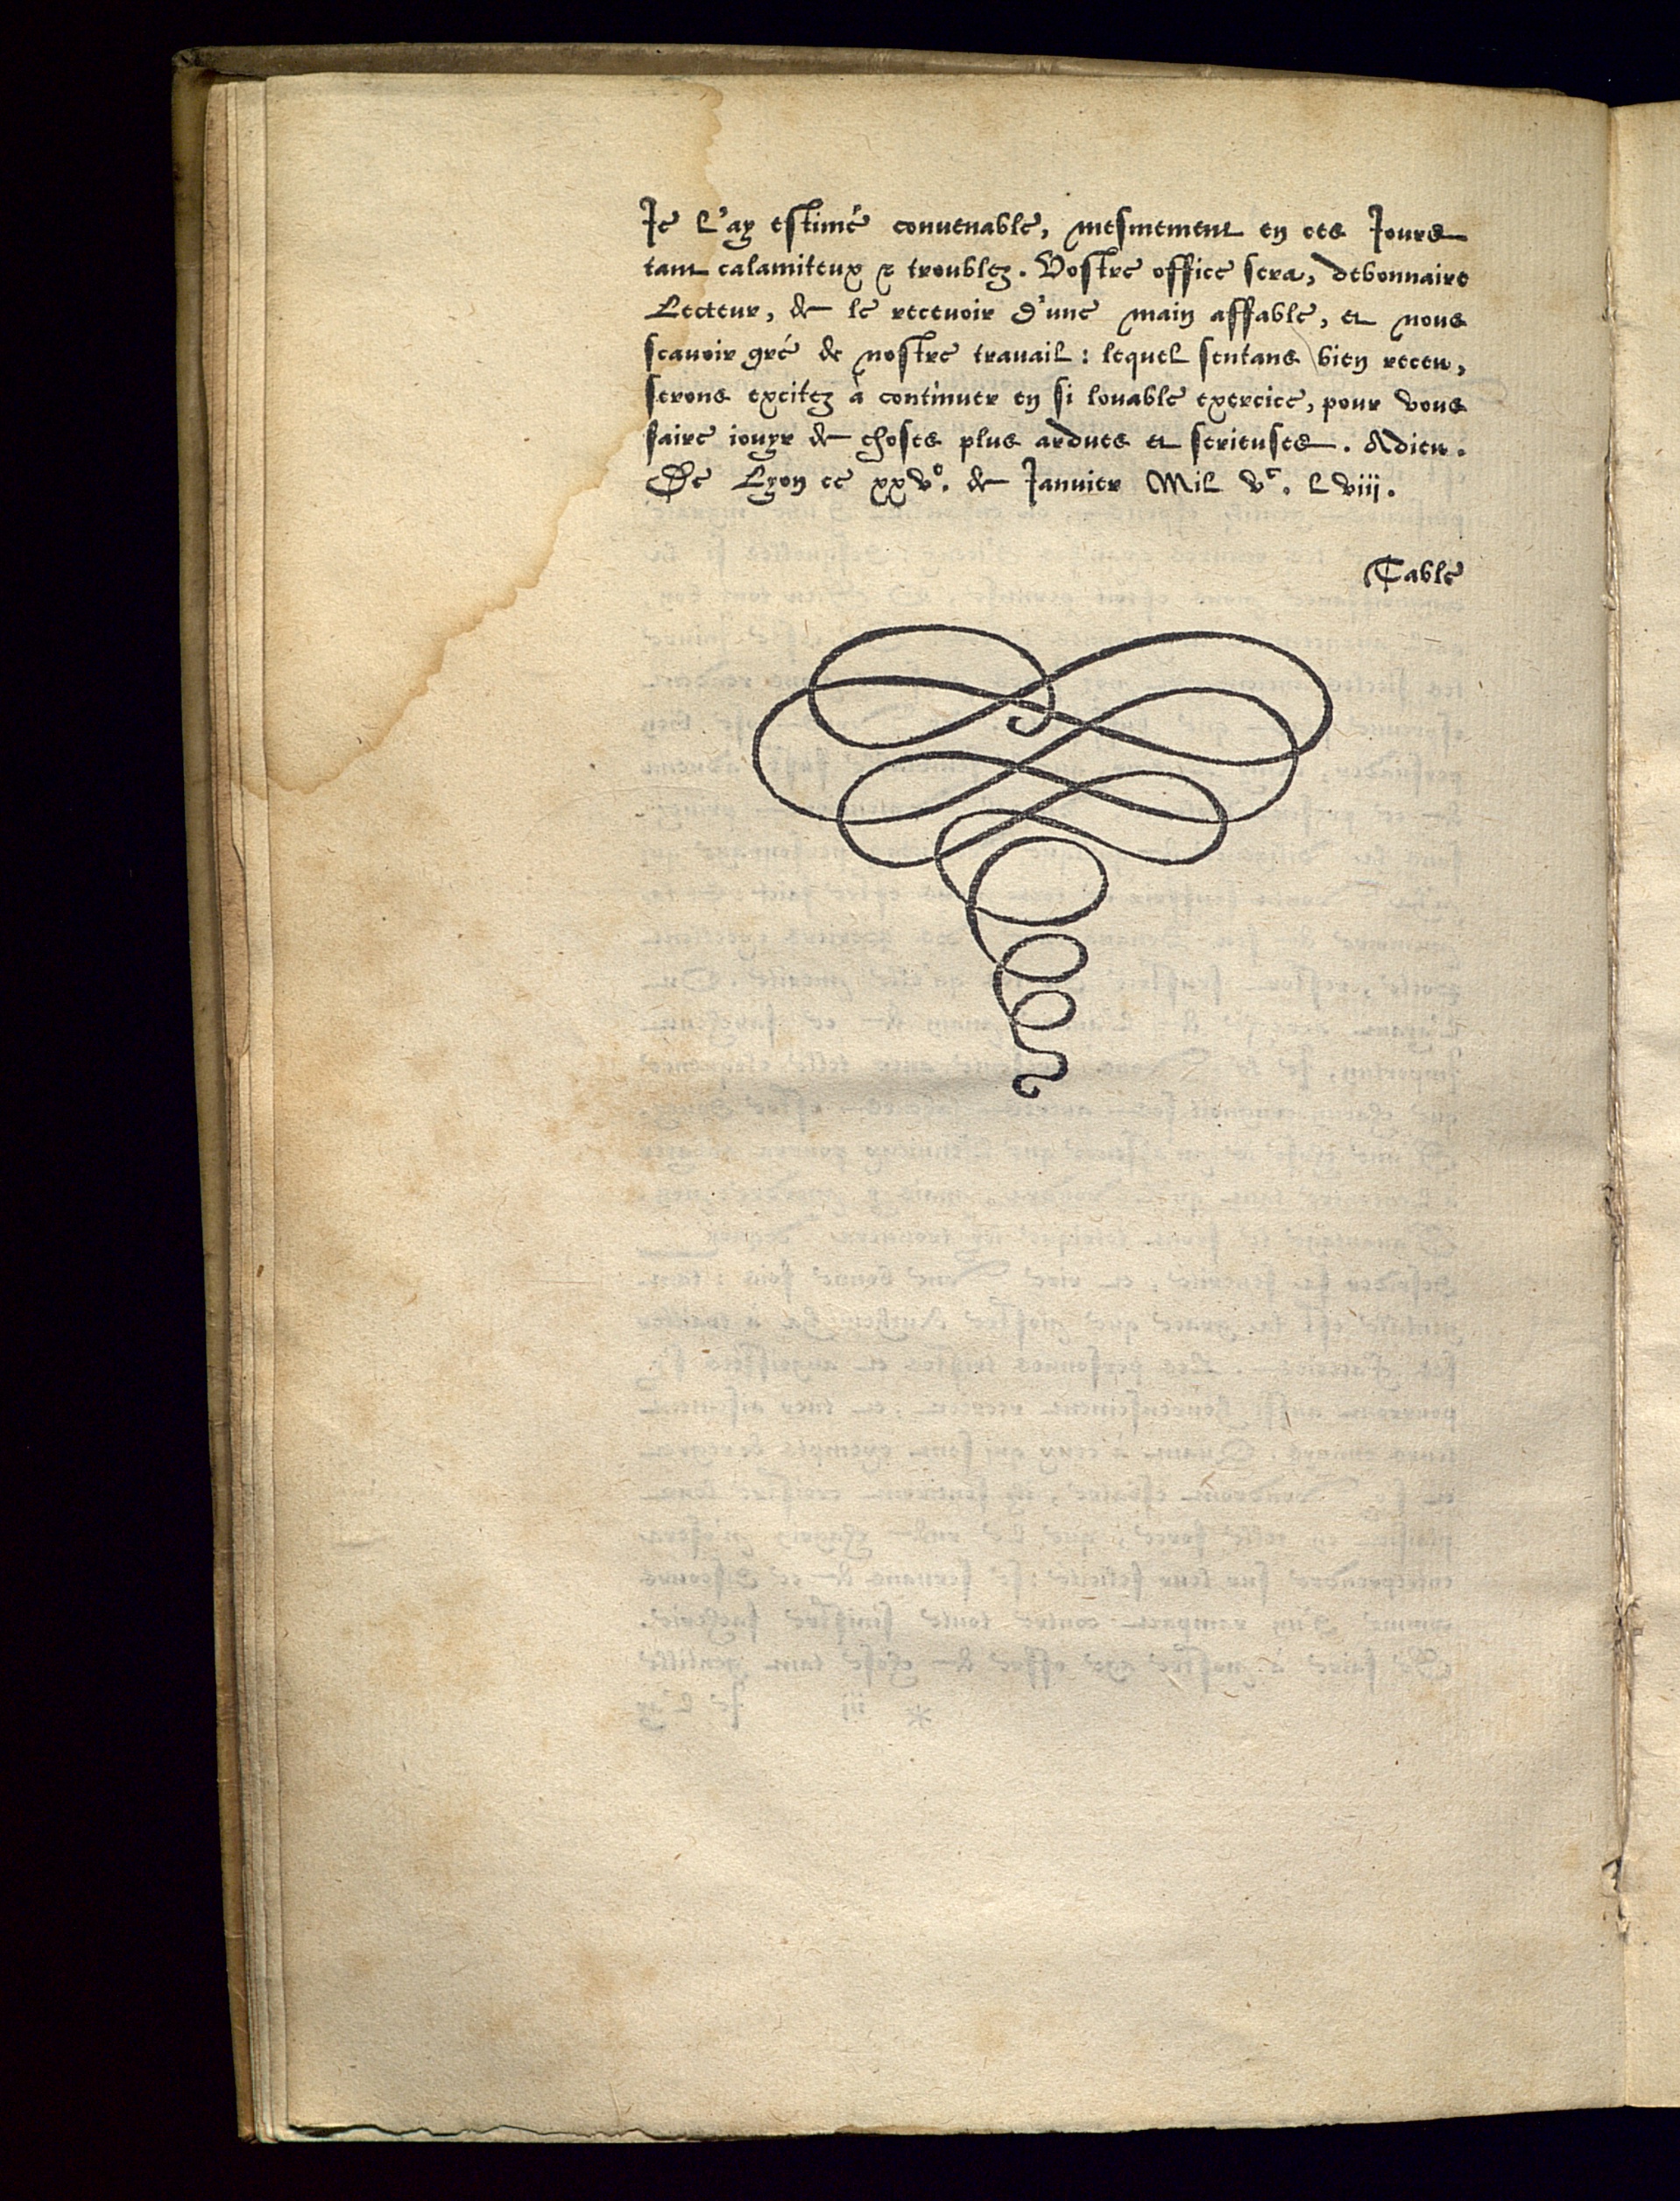 Je l'ay estimé conuenable, mesmement en ces Jours
tant calamiteux & troublez. Vostre office sera, debonnaire
Lecteur, de le receuoir d'une main affable, et nous
scauoir gré de nostre trauail : lequel sentans bien receu,
serons excitez à continuer en si louable exercice, pour vous
faire iouyr de choses plus ardues et serieuses. Adieu.
De Lyon ce xxvº. de Januier Mil vᶜ. lviii.
Table